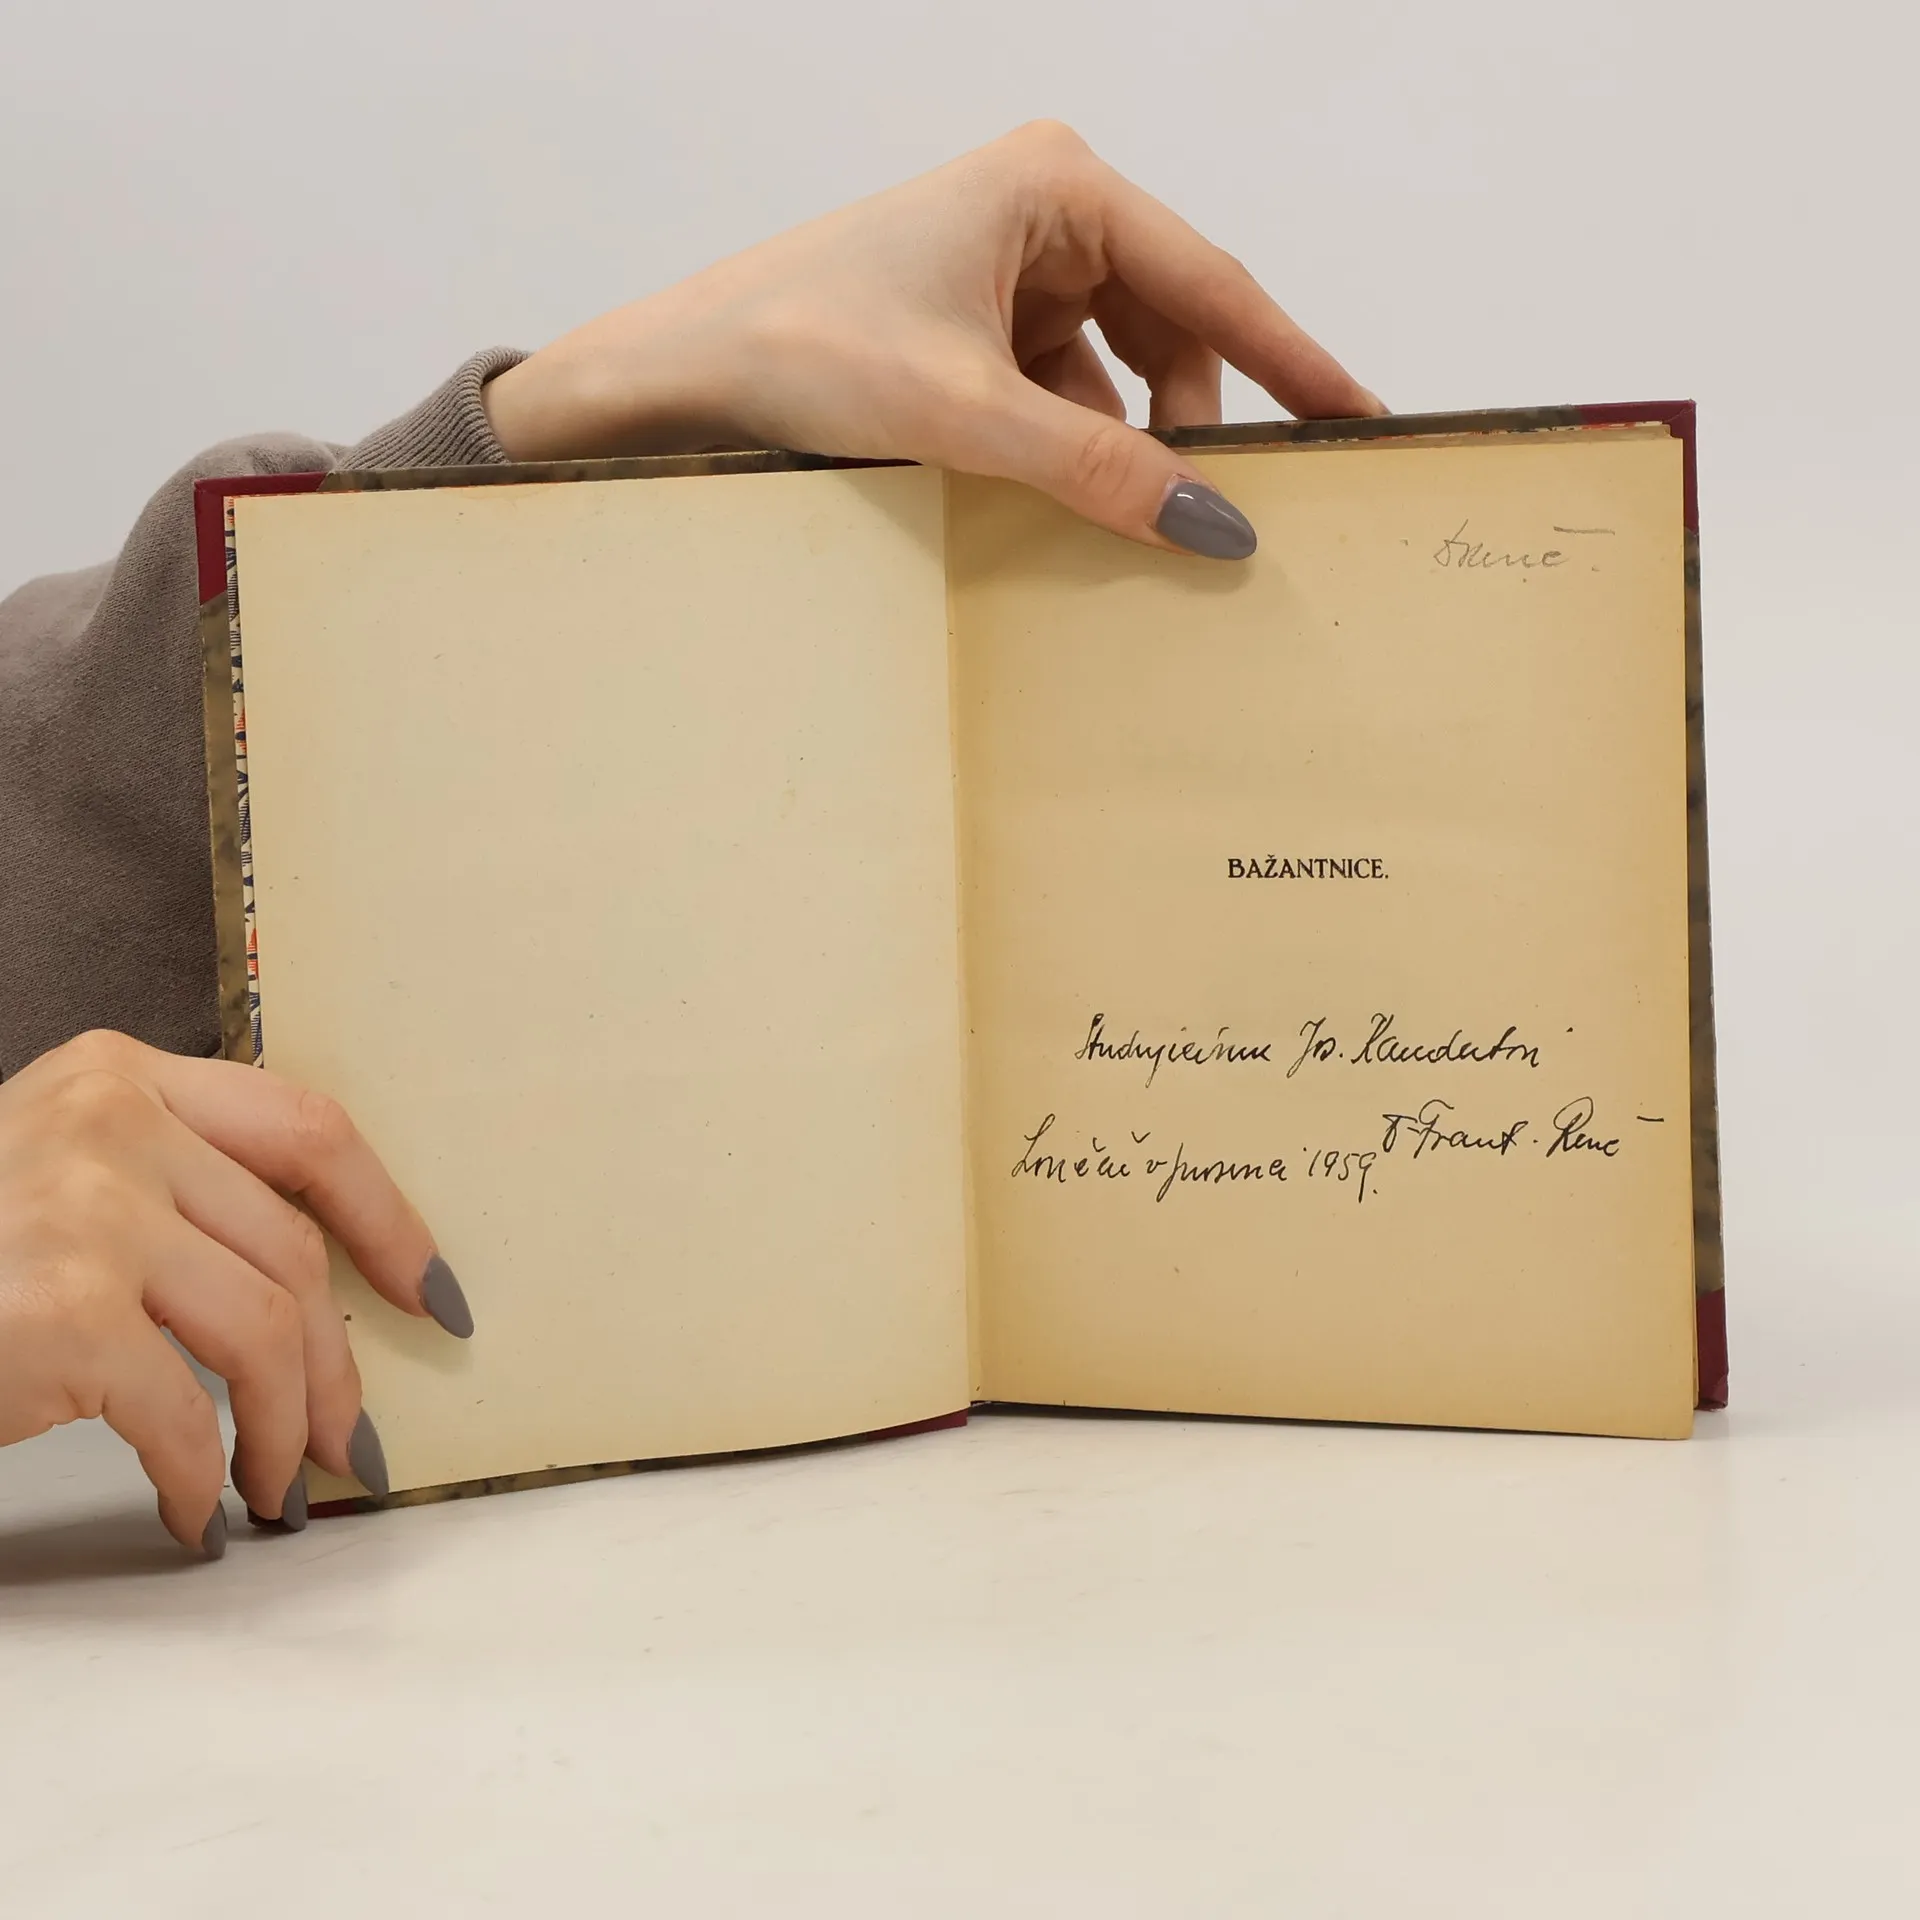 BAŽANTNICE.
Studujícímu Jos. Kandertovi
Lončař v prosinci 1959.
Frant. Renč